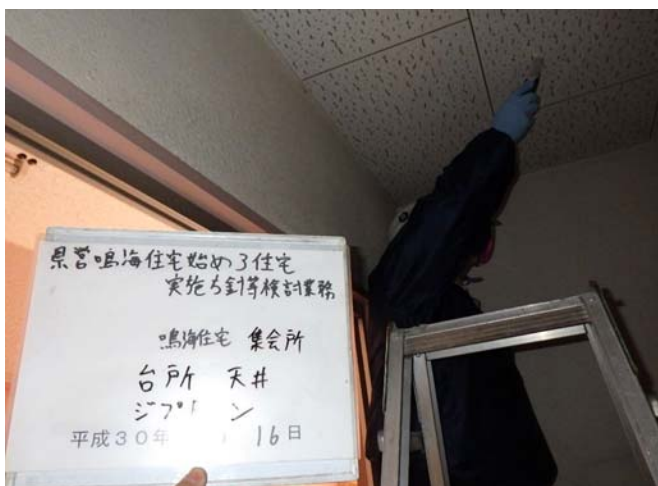 県営鳴海住宅始め3住宅
実施方針等検討業務
鳴海住宅 集会所
台所 天井
ジプ ン
平成30年 16日